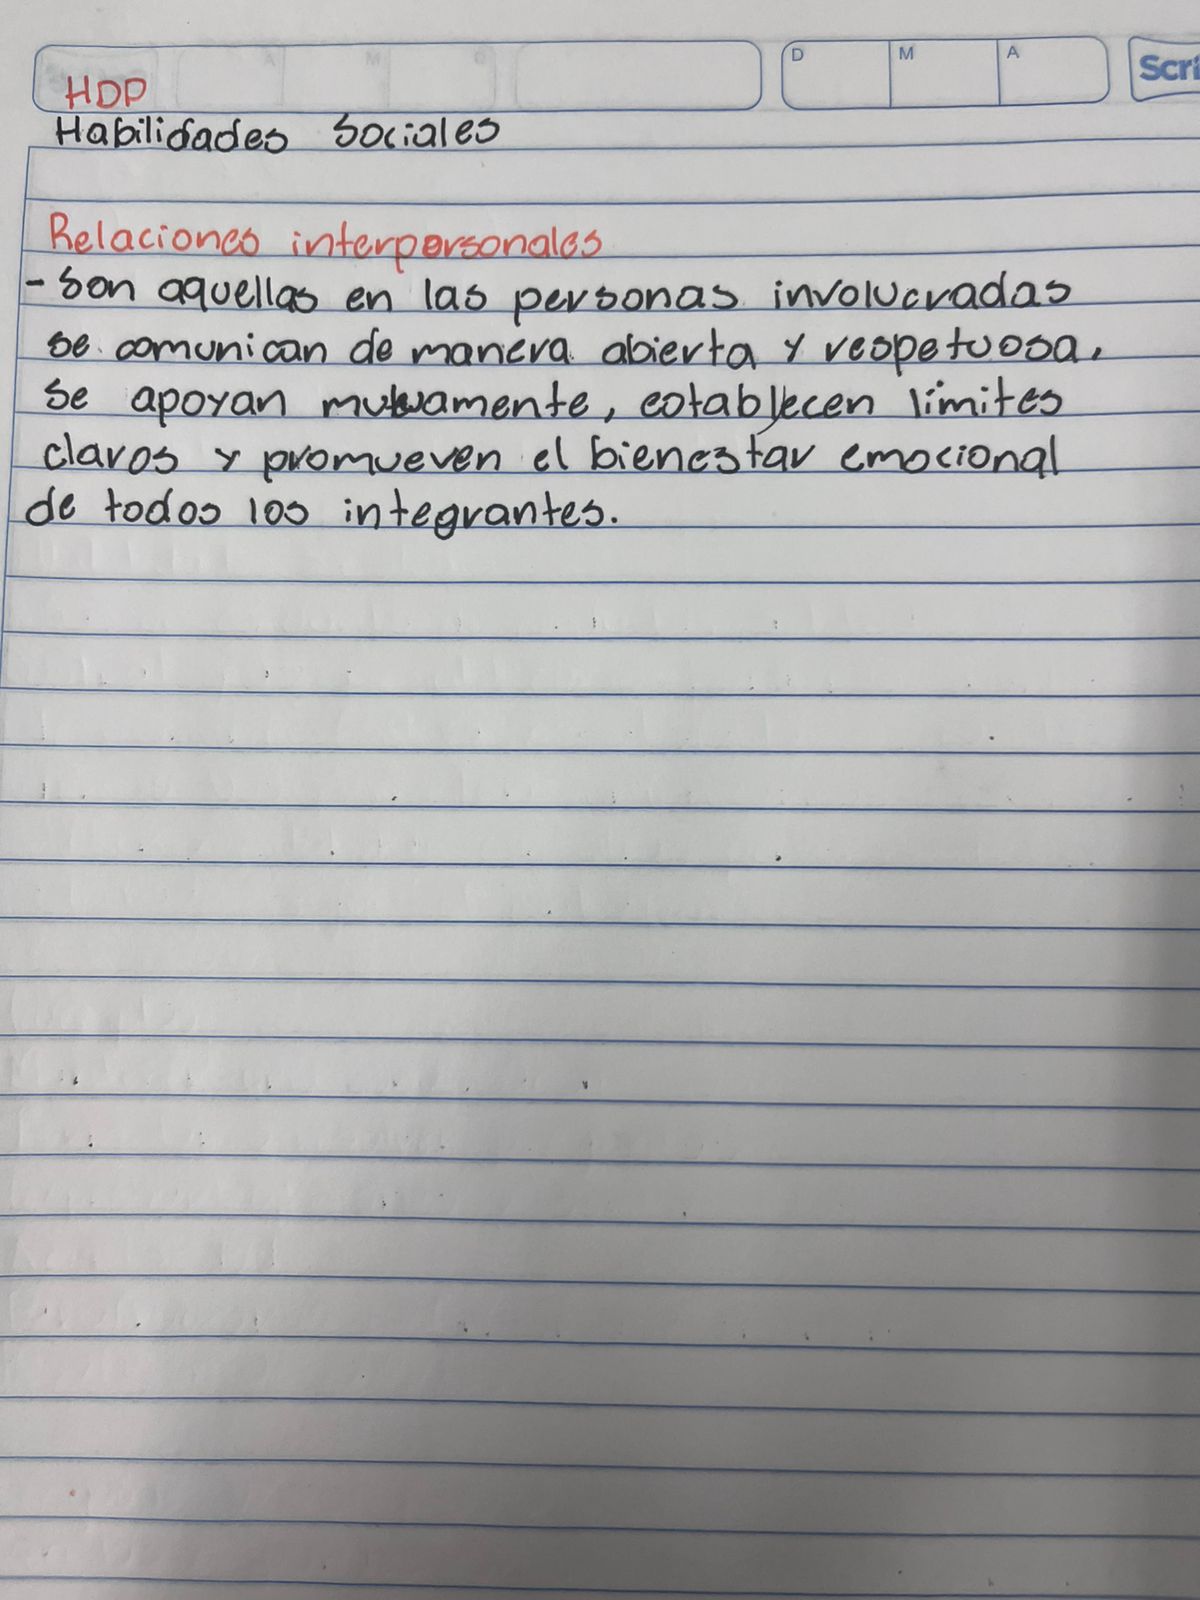 D M A
Scri
HDP
Habilidades Sociales
Relaciones interpersonales
- Son aquellas en las personas involucradas
se comunican de manera abierta y respetuosa,
se apoyan mutuamente, establecen límites
claros y promueven el bienestar emocional
de todos los integrantes.